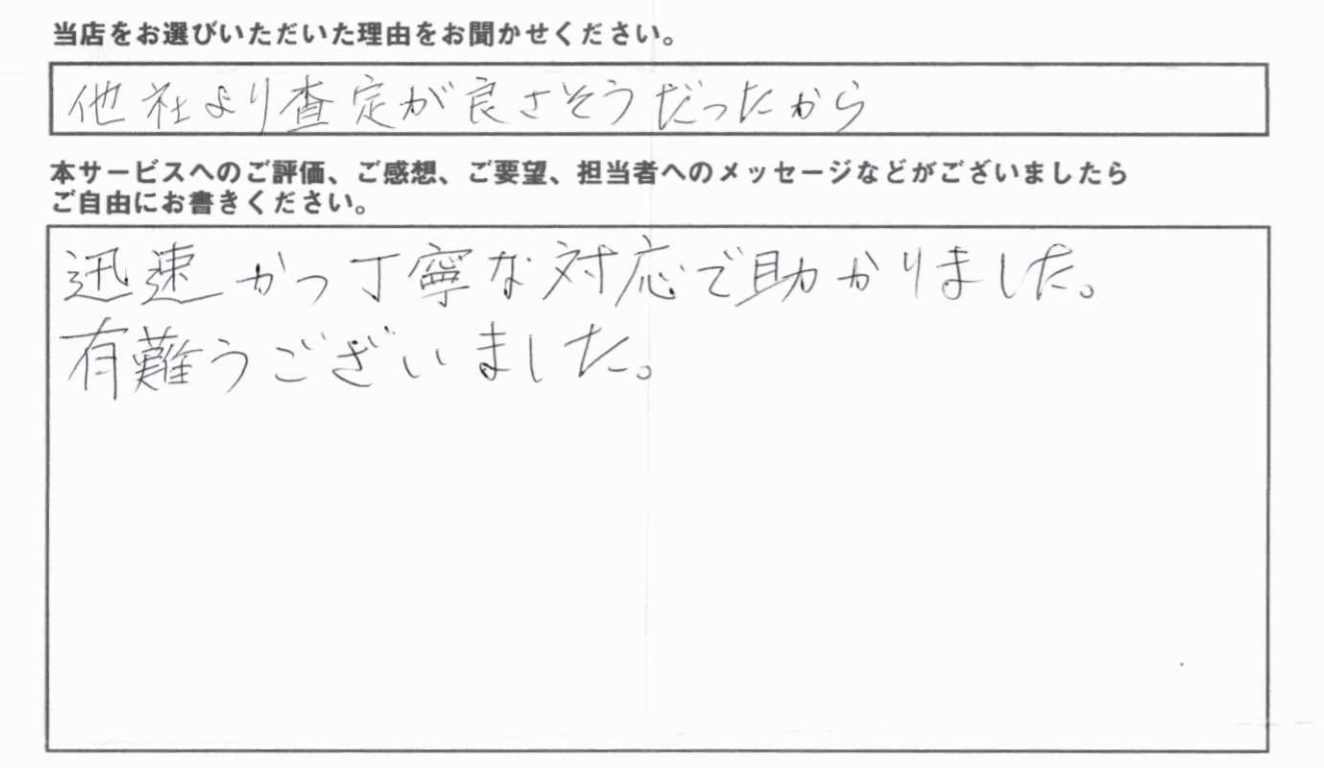 当店をお選びいただいた理由をお聞かせください。
他社より査定が良さそうだったから
本サービスへのご評価、ご感想、ご要望、担当者へのメッセージなどがございましたら
ご自由にお書きください。
迅速かつ丁寧な対応で助かりました。
有難うございました。